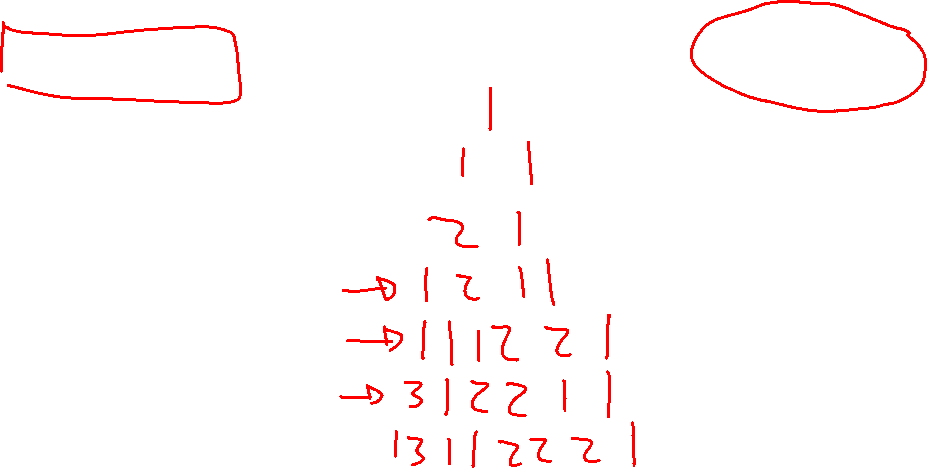 1
1 1
2 1
→ 1 2 1 1
→ 1 1 1 2 2 1
→ 3 1 2 2 1 1
1 3 1 1 2 2 2 1